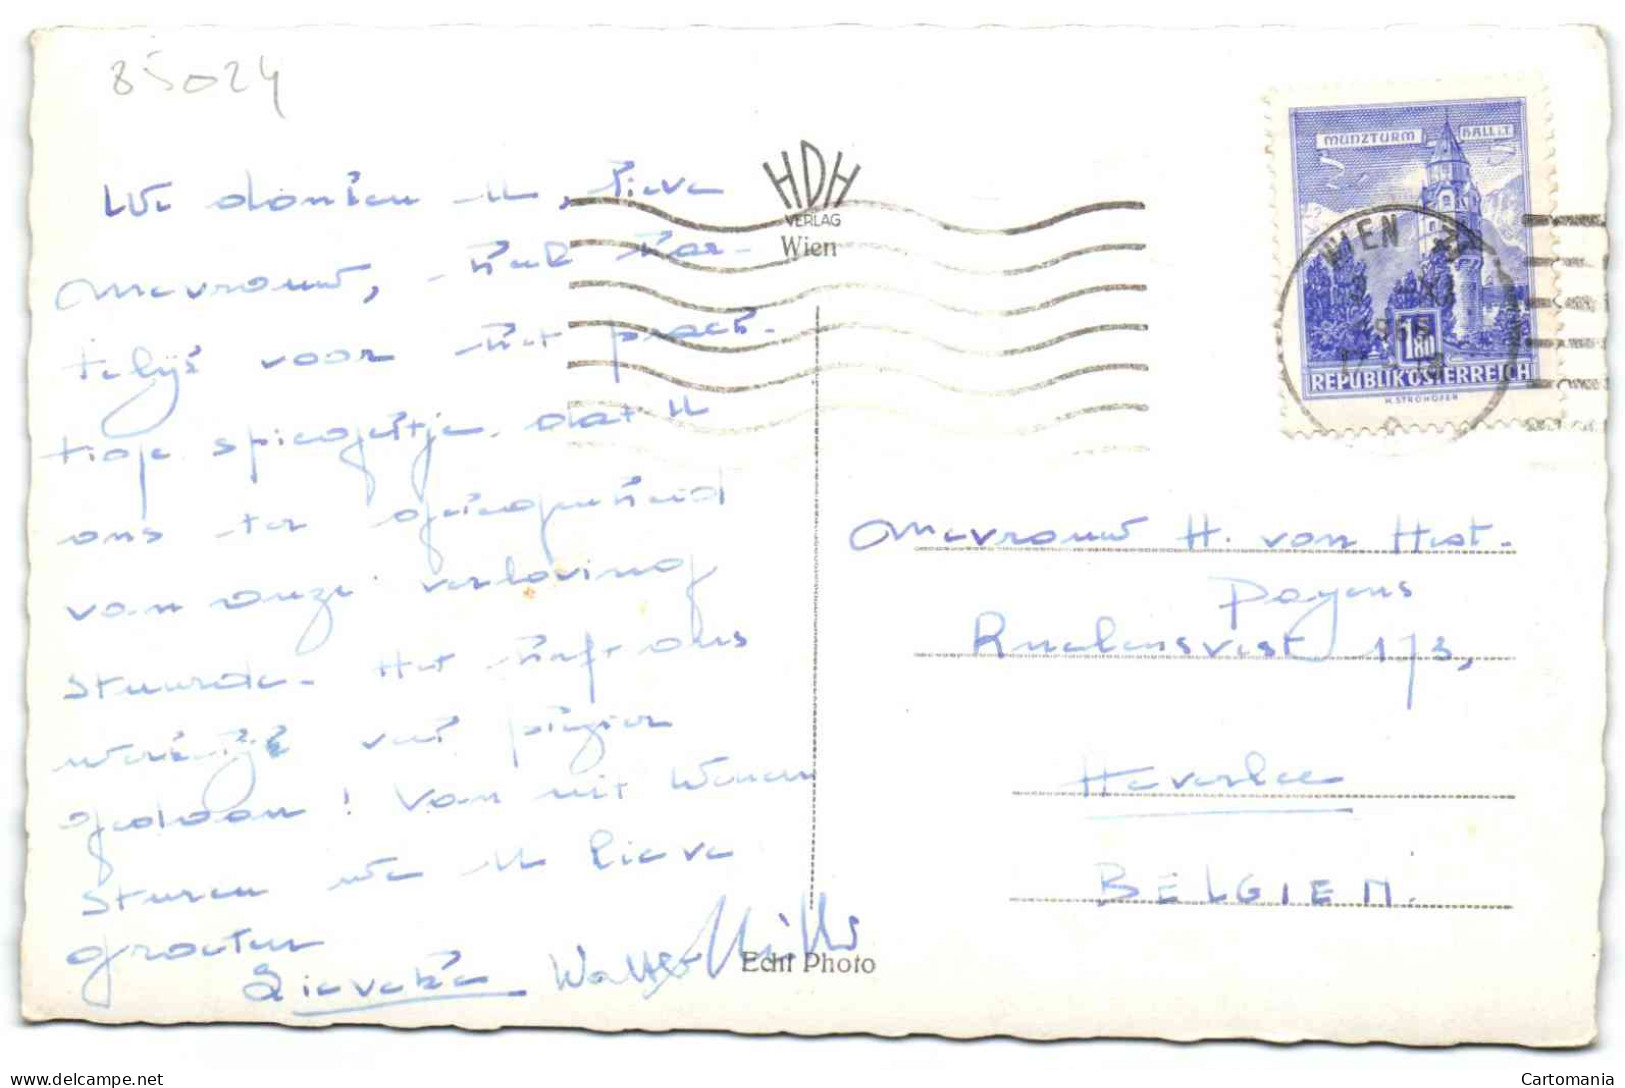 85024
We danken U, lieve
Mevrouw, heel har-
telijk voor het prach-
tige spiegeltje dat U
ons ter gelegenheid
van onze verloving
stuurde. Het heeft ons
werkelijk veel plezier
gedaan! Van uit Wenen
sturen we U lieve
groeten
Lieveke Walter
HDH
VERLAG
Wien
Echt Photo
MÜNZTURM HALL I.T.
WIEN
1.80
REPUBLIK ÖSTERREICH
H. STROHOFER
Mevrouw H. van Hest-
Payens
Ruelensvest 173,
Heverlee
BELGIEN.
Cartomania